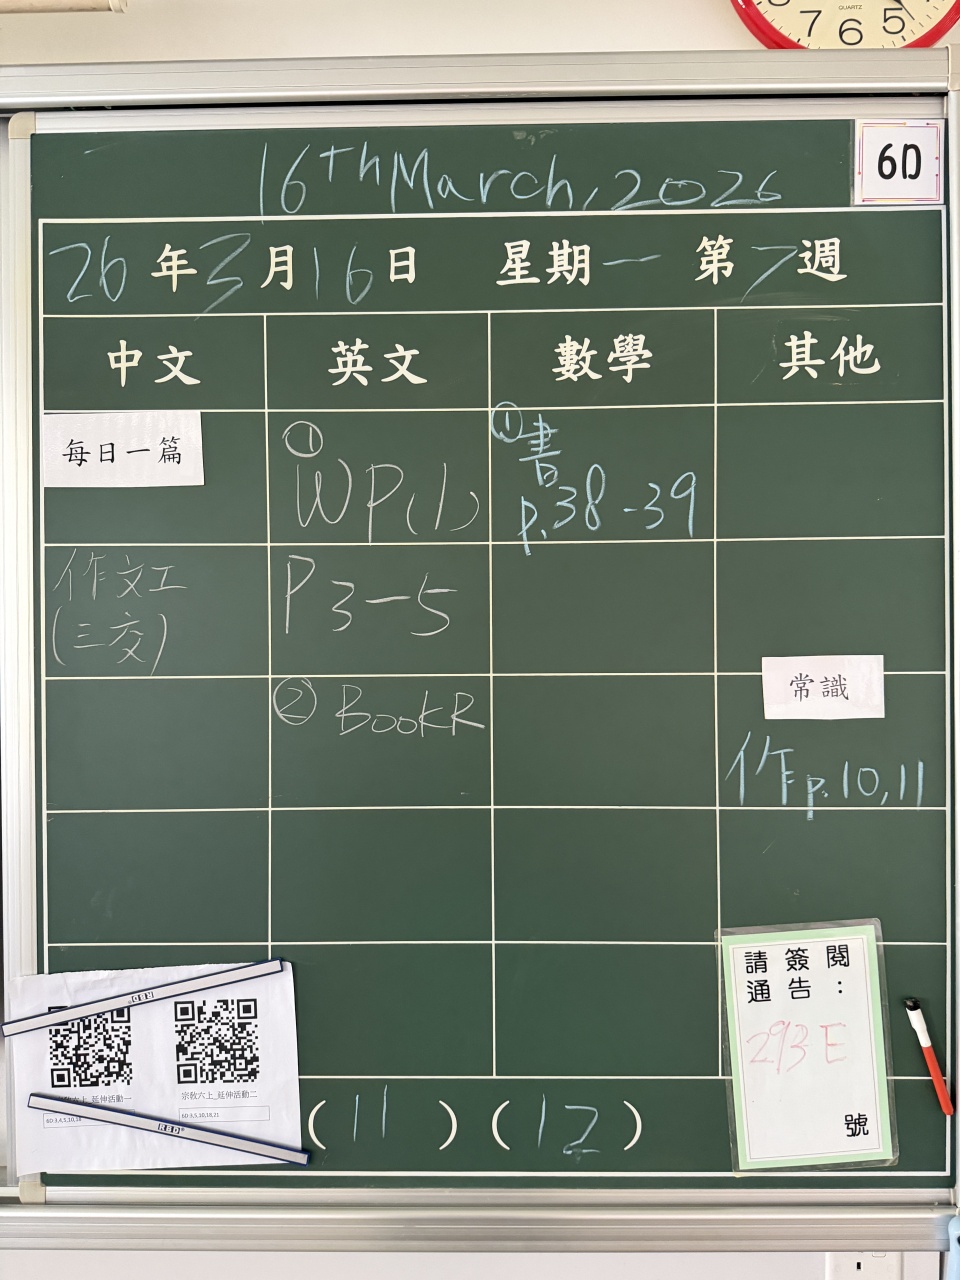 QUARTZ
7 6 5
16th March, 2026
6D
26年3月16日 星期一 第7週
中文 英文 數學 其他
每日一篇
① WP(1)
① 書
p.38-39
作文工
(三交)
P3-5
② BookR
常識
作p.10,11
請簽閱
通告：
293E
號
RED®
延伸活動一
宗教六上_延伸活動二
6D:3,5,10,18,21
RED®
(11) (12)